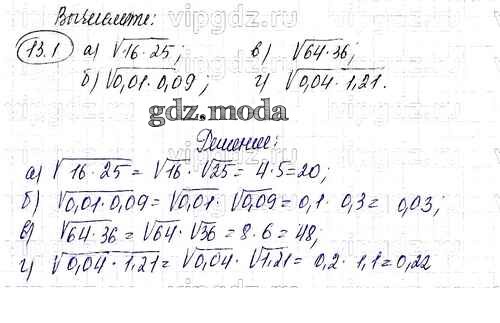 vipgdz.ru vipgdz.ru
Вычислите:
13.1 а) √16·25; в) √64·36;
б) √0,01·0,09; г) √0,04·1,21.
gdz.moda
Решение:
а) √16·25 = √16 · √25 = 4·5=20;
б) √0,01·0,09 = √0,01 · √0,09 = 0,1 · 0,3 = 0,03;
в) √64·36 = √64 · √36 = 8·6 = 48;
г) √0,04 · 1,21 = √0,04 · √1,21 = 0,2 · 1,1 = 0,22